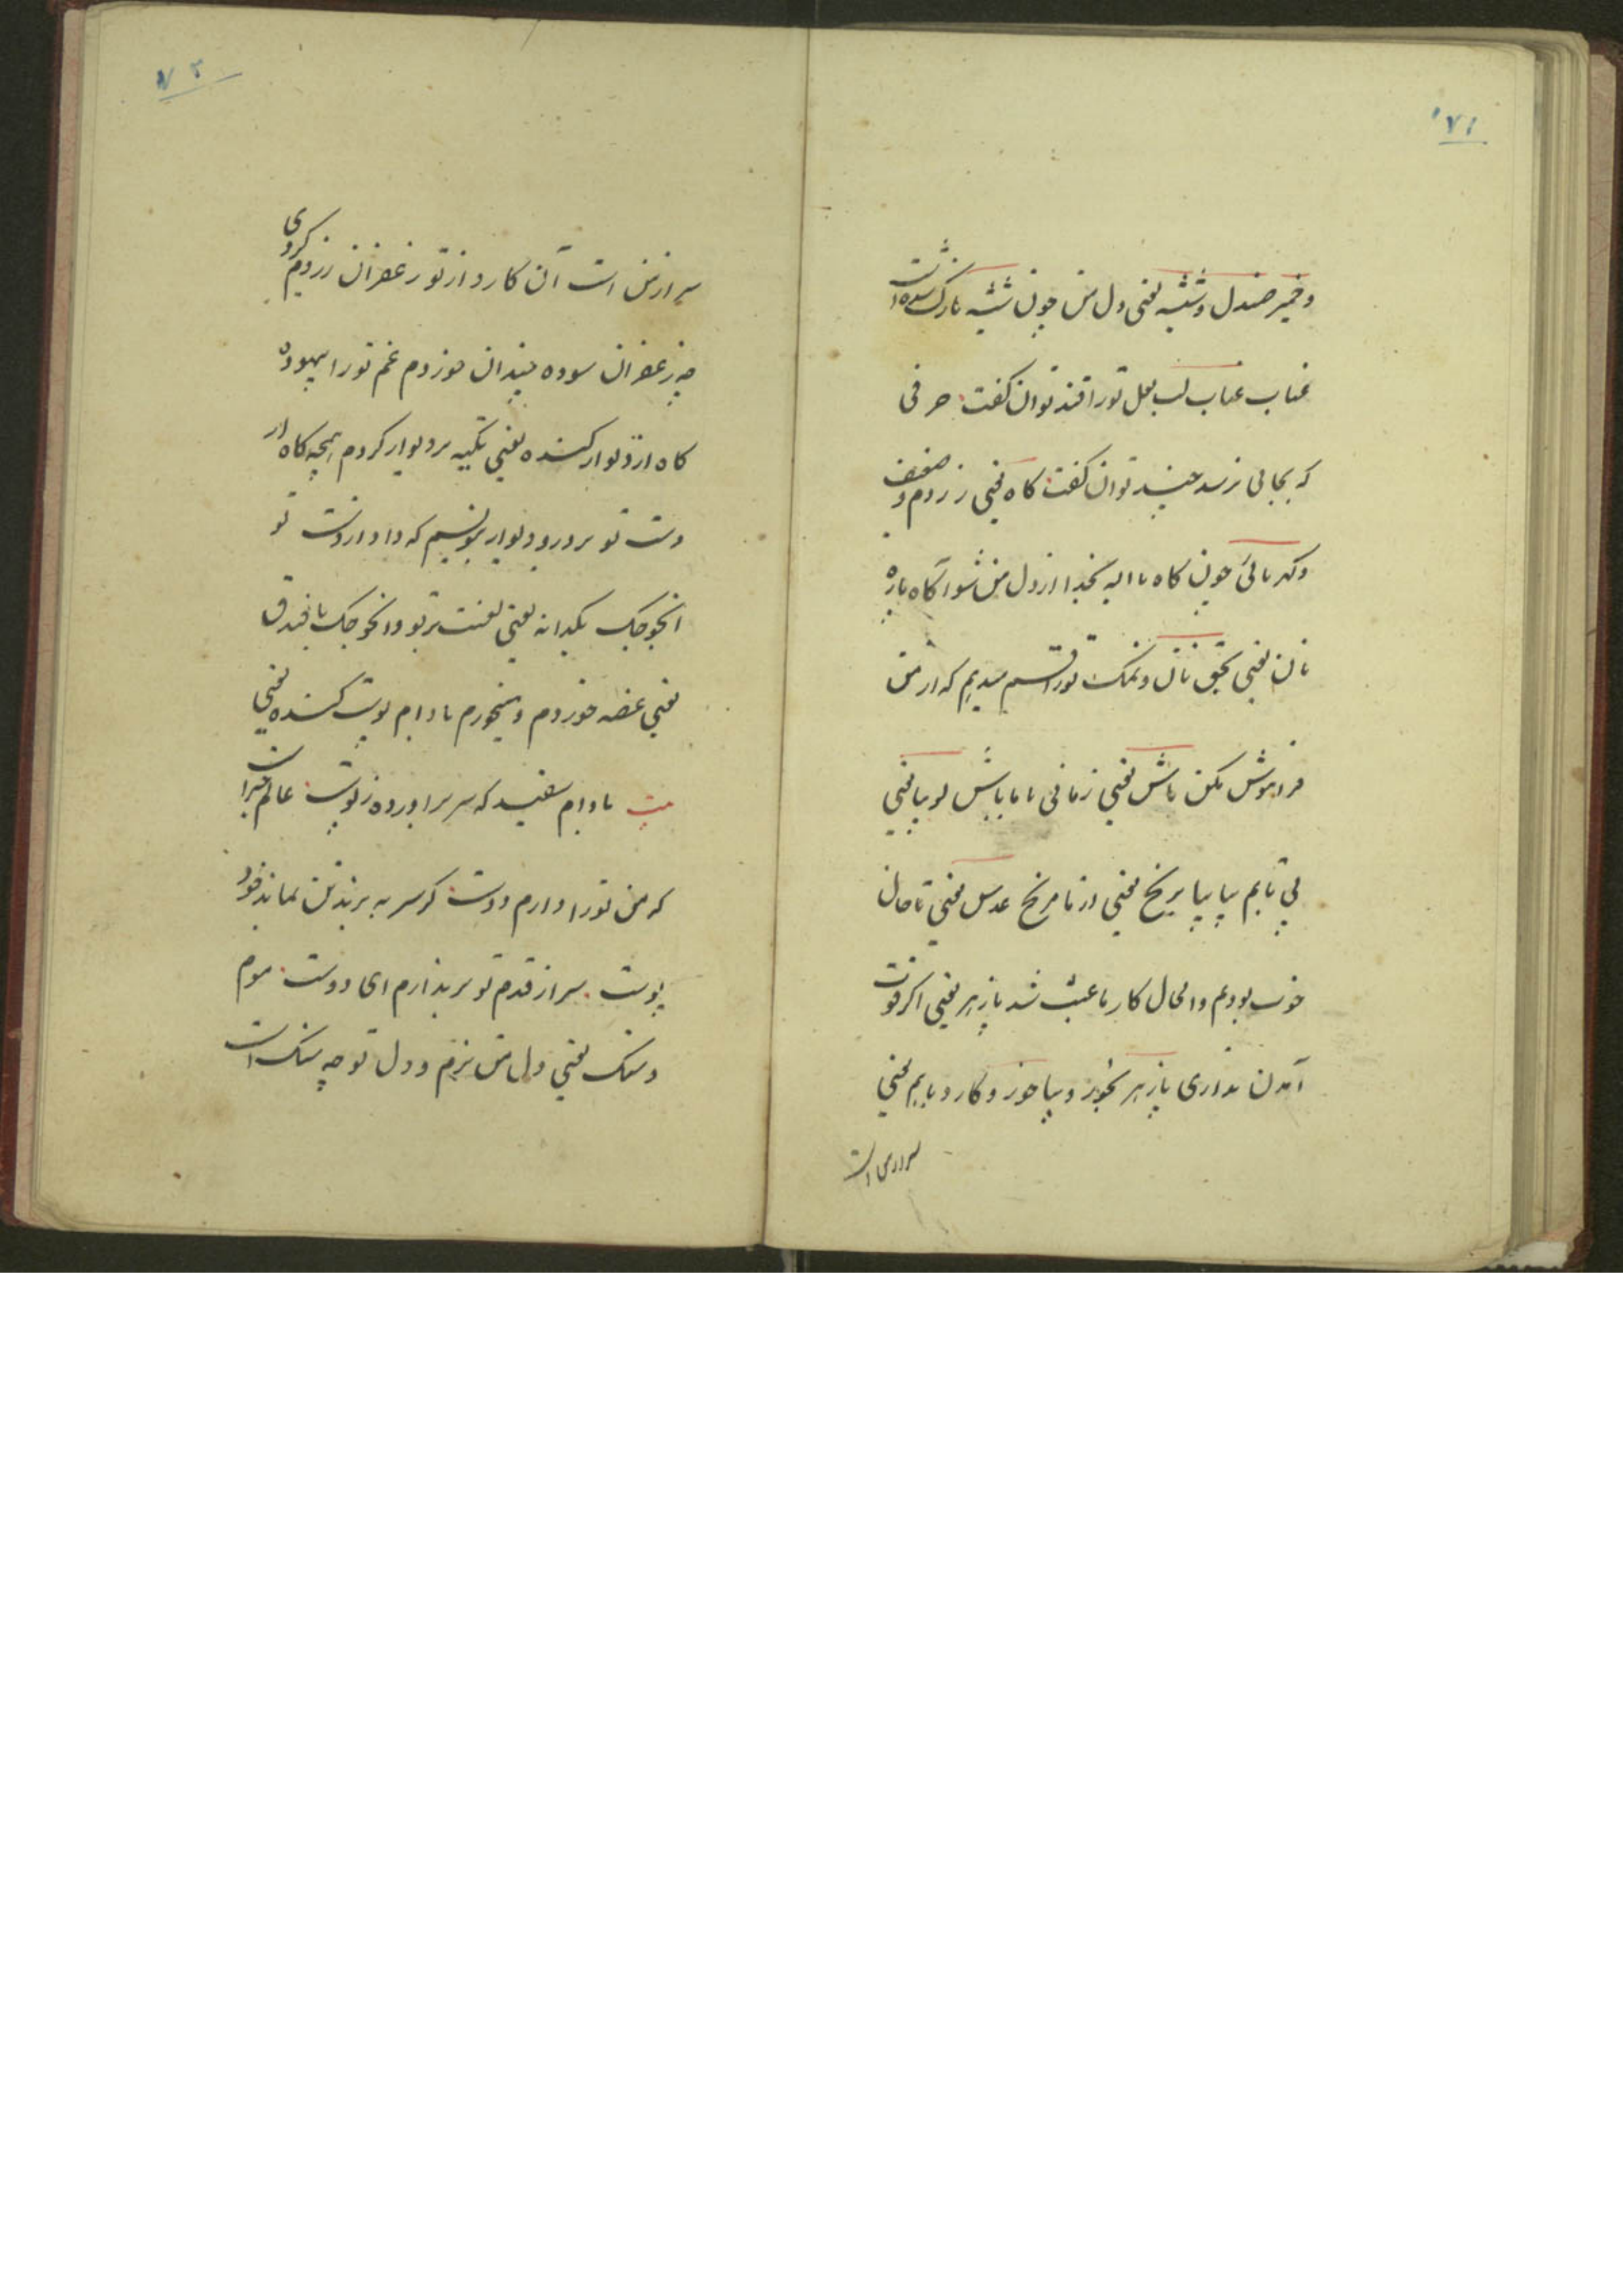 ۷۱
وخمیر صندل وشیشه یعنی دل من چون شیشه نازک شده است
عناب عناب لب لعل تورا قند توان گفت حرفی
که بجائی نرسد چند توان گفت کاه یعنی زردم و ضعیف
وکهربائی چون کاه با الیه بخدا از دل من شو آگاه پاره
نان یعنی بحق نان ونمک تورا قسم میدهم که از من
فراموش مکن ماش یعنی زمانی با ما باش لوبیا یعنی
بی تابم بیا بیا برنج یعنی از ما مرنج عدس یعنی تا حال
خوب بودیم والحال کار ما عبث شد پازهر یعنی اگر قوت
آمدن نداری پازهر بخور و بیا خوز وکارد بابیم یعنی
سر از من است
۷۲
سر از من است آن کارد از تو زعفران زردم کردی
چه زعفران سوده چندان خوردم غم تورا بیهوده
کاه از دیوار کنده یعنی تکیه بر دیوار کردم همچه کاه از
دست تو بر در و دیوار بنویسیم که داد از دست تو
انجوجک یکدانه یعنی لعنت بر تو و انجوجک با فندق
یعنی غصه خوردم و میخورم بادام پوست کنده یعنی
بیت بادام سفید که سر برآورده ز پوست عالم خبر است
که من تورا دارم دوست گر سر به برند تن نماند خود
پوست سر از قدم تو بر ندارم ای دوست موم
وسنک یعنی دل من نرم و دل تو چه سنک است